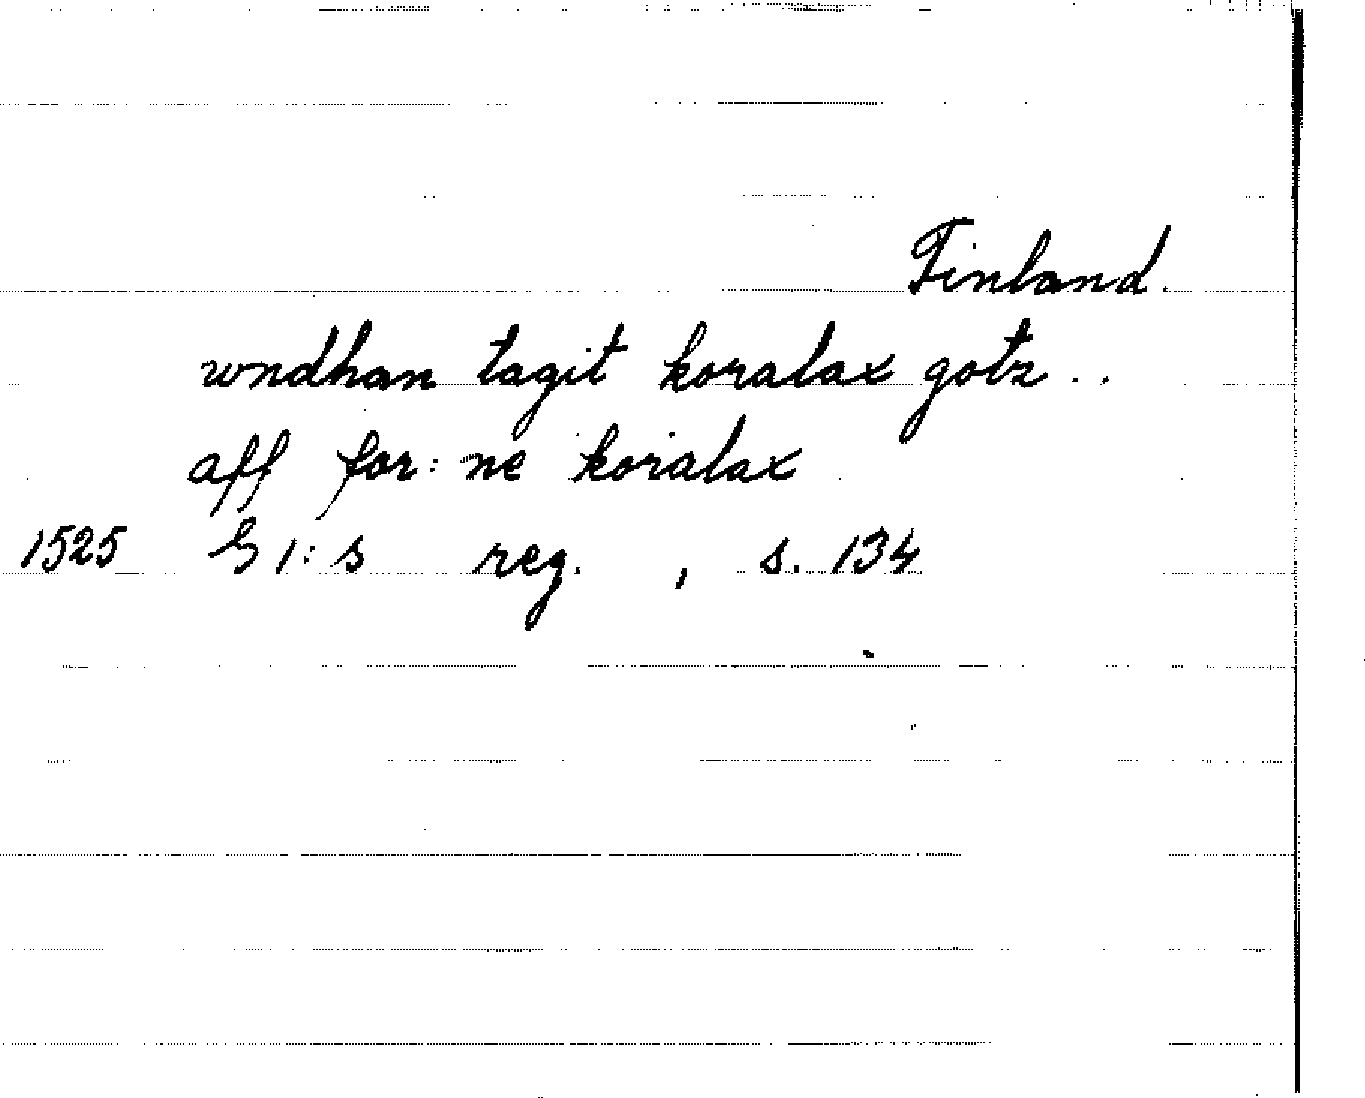 Finland.
wndhan tagit koralax gotz ..
aff for: ne koralax
1525 G1:s reg. , s. 134